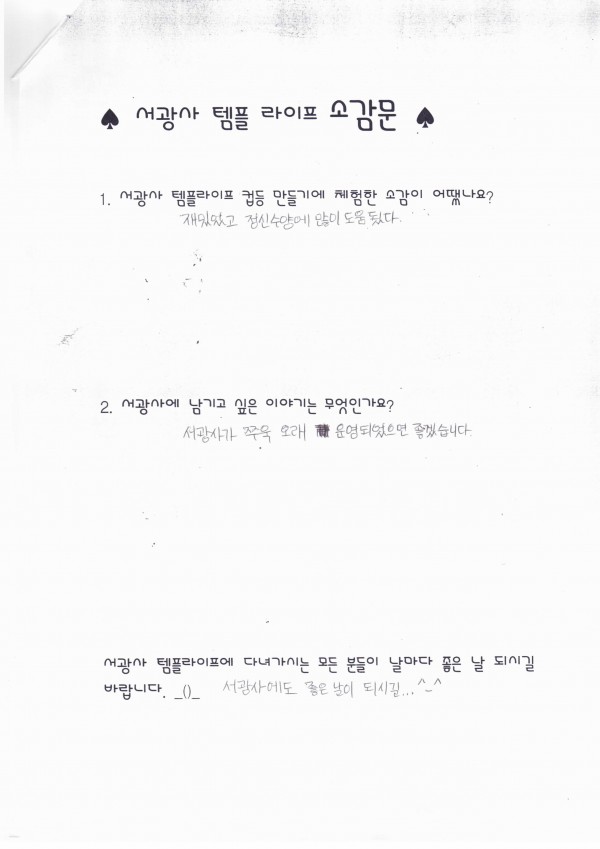 ♠ 서광사 템플 라이프 소감문 ♠
1. 서광사 템플라이프 컵등 만들기에 체험한 소감이 어땠나요?
재밌었고 정신수양에 많이 도움됐다.
2. 서광사에 남기고 싶은 이야기는 무엇인가요?
서광사가 쭈욱 오래 운영되었으면 좋겠습니다.
서광사 템플라이프에 다녀가시는 모든 분들이 날마다 좋은 날 되시길
바랍니다. _()_ 서광사에도 좋은 날이 되시길... ^-^